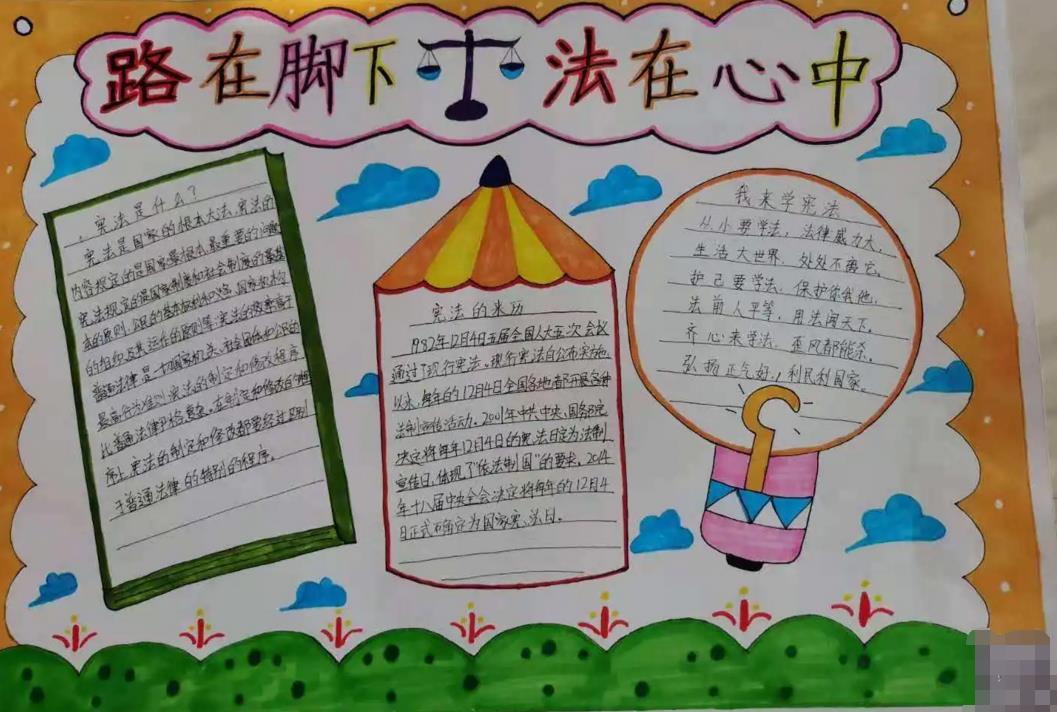 路在脚下 法在心中
宪法是什么?
宪法是国家的根本大法,宪法的
内容规定的是国家最根本、最重要的问题
宪法规定的是国家制度和社会制度的最基
本的原则,公民的基本权利和义务,国家机构
的组织及其运作的原则等,宪法的效率高于
普通法律是一切国家机关、社会团体和公民的
最高行为准则宪法的制定和修改程序
比普通法律严格复杂。在制定和修改的程
序上宪法的制定和修改都要经过区别
于普通法律的特别的程序。
宪法的来历
1982年12月4日五届全国人大五次会议
通过了现行宪法。现行宪法自公布实施,
以来,每年的12月4日全国各地都开展各种
法制宣传活动。2001年中共中央、国务院
决定将每年12月4日的宪法日定为法制
宣传日,体现了“依法制国”的要求。2014
年十八届中央全会决定将每年的12月4
日正式确定为国家宪法日。
我来学宪法
从小要学法,法律威力大,
生活大世界,处处不离它,
护己要学法,保护你我他,
法前人平等,用法闯天下,
齐心来学法,歪风都能杀。
弘扬正气好,利民利国家。